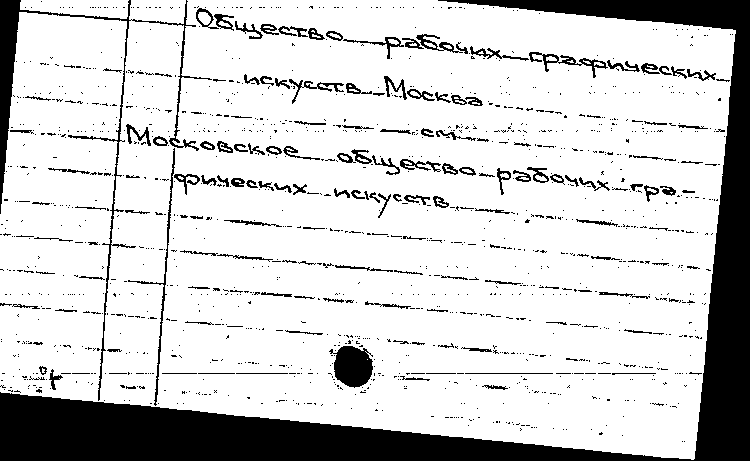 Общество рабочих графических
искусств Москва
см
Московское общество рабочих гра-
фических искусств